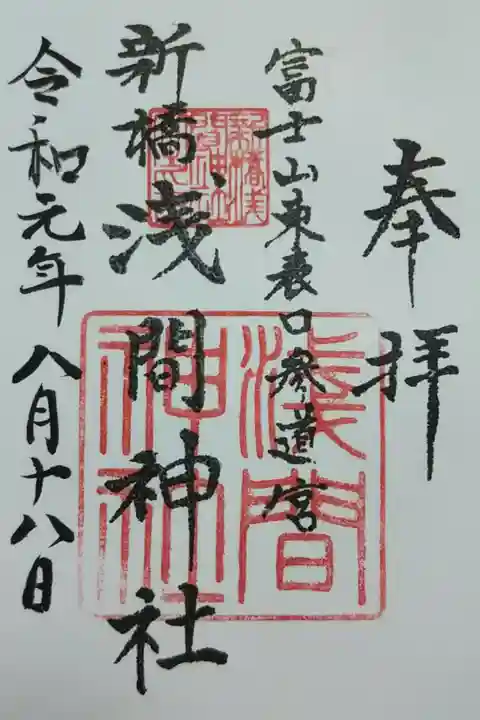 奉拝
富士山東表口参道宮
新橋浅間神社
令和元年八月十八日
浅間
神社